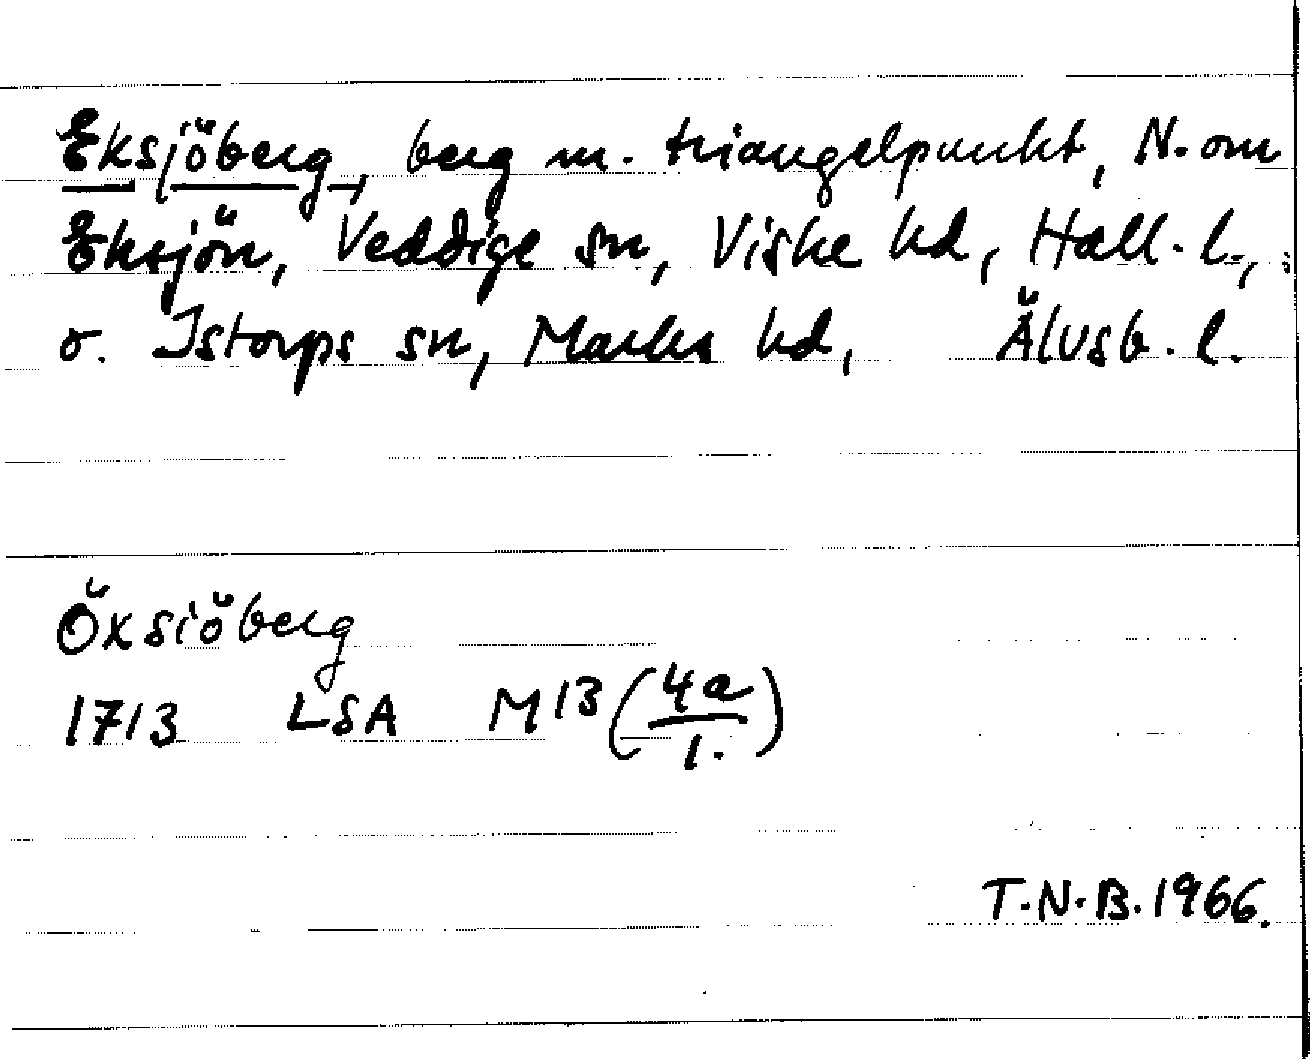 Eksjöberg, berg m. triangelpunkt, N. om
Eksjön, Veddige sn, Viske hd, Hall. l.,
o. Istorps sn, Marks hd, Älvsb. l.
Öxsiöberg
1713 LSA M13 (4a/1.)
T.N.B. 1966.